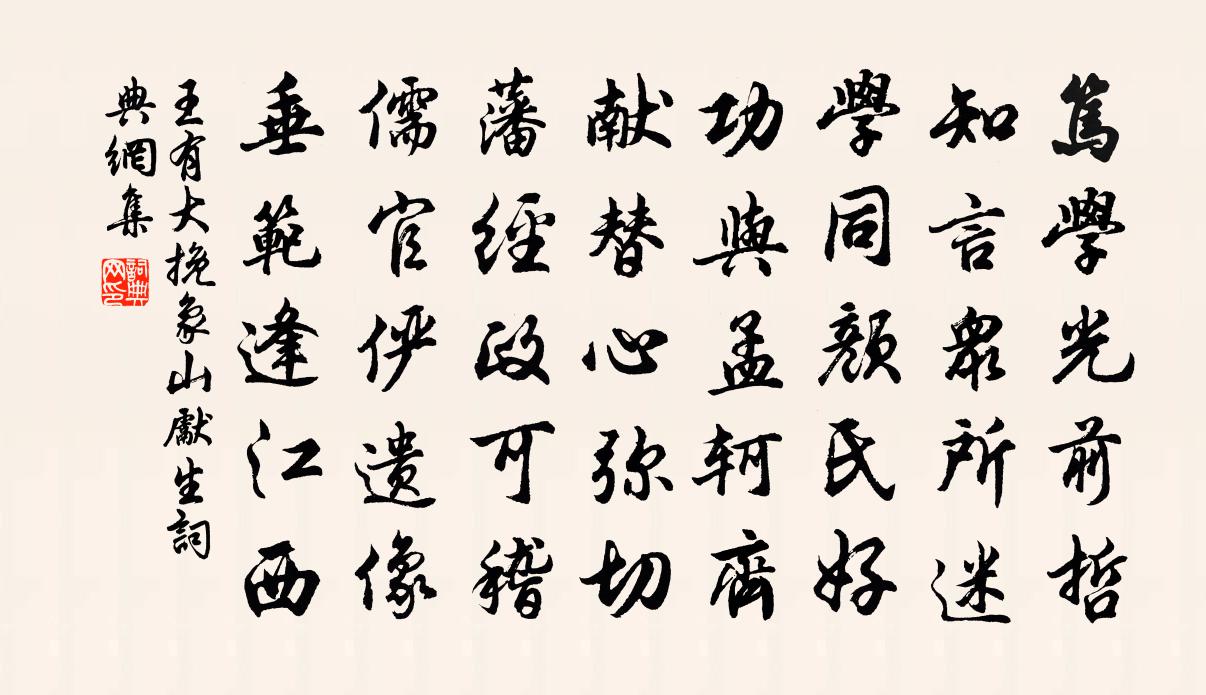 篤學光前哲
知言眾所迷
學同顏氏好
功與孟軻齊
献替心弥切
藩經政可稽
儒官俨遗像
垂範逢江西
王有大挽象山獻生詞
典網集
詞典
网印